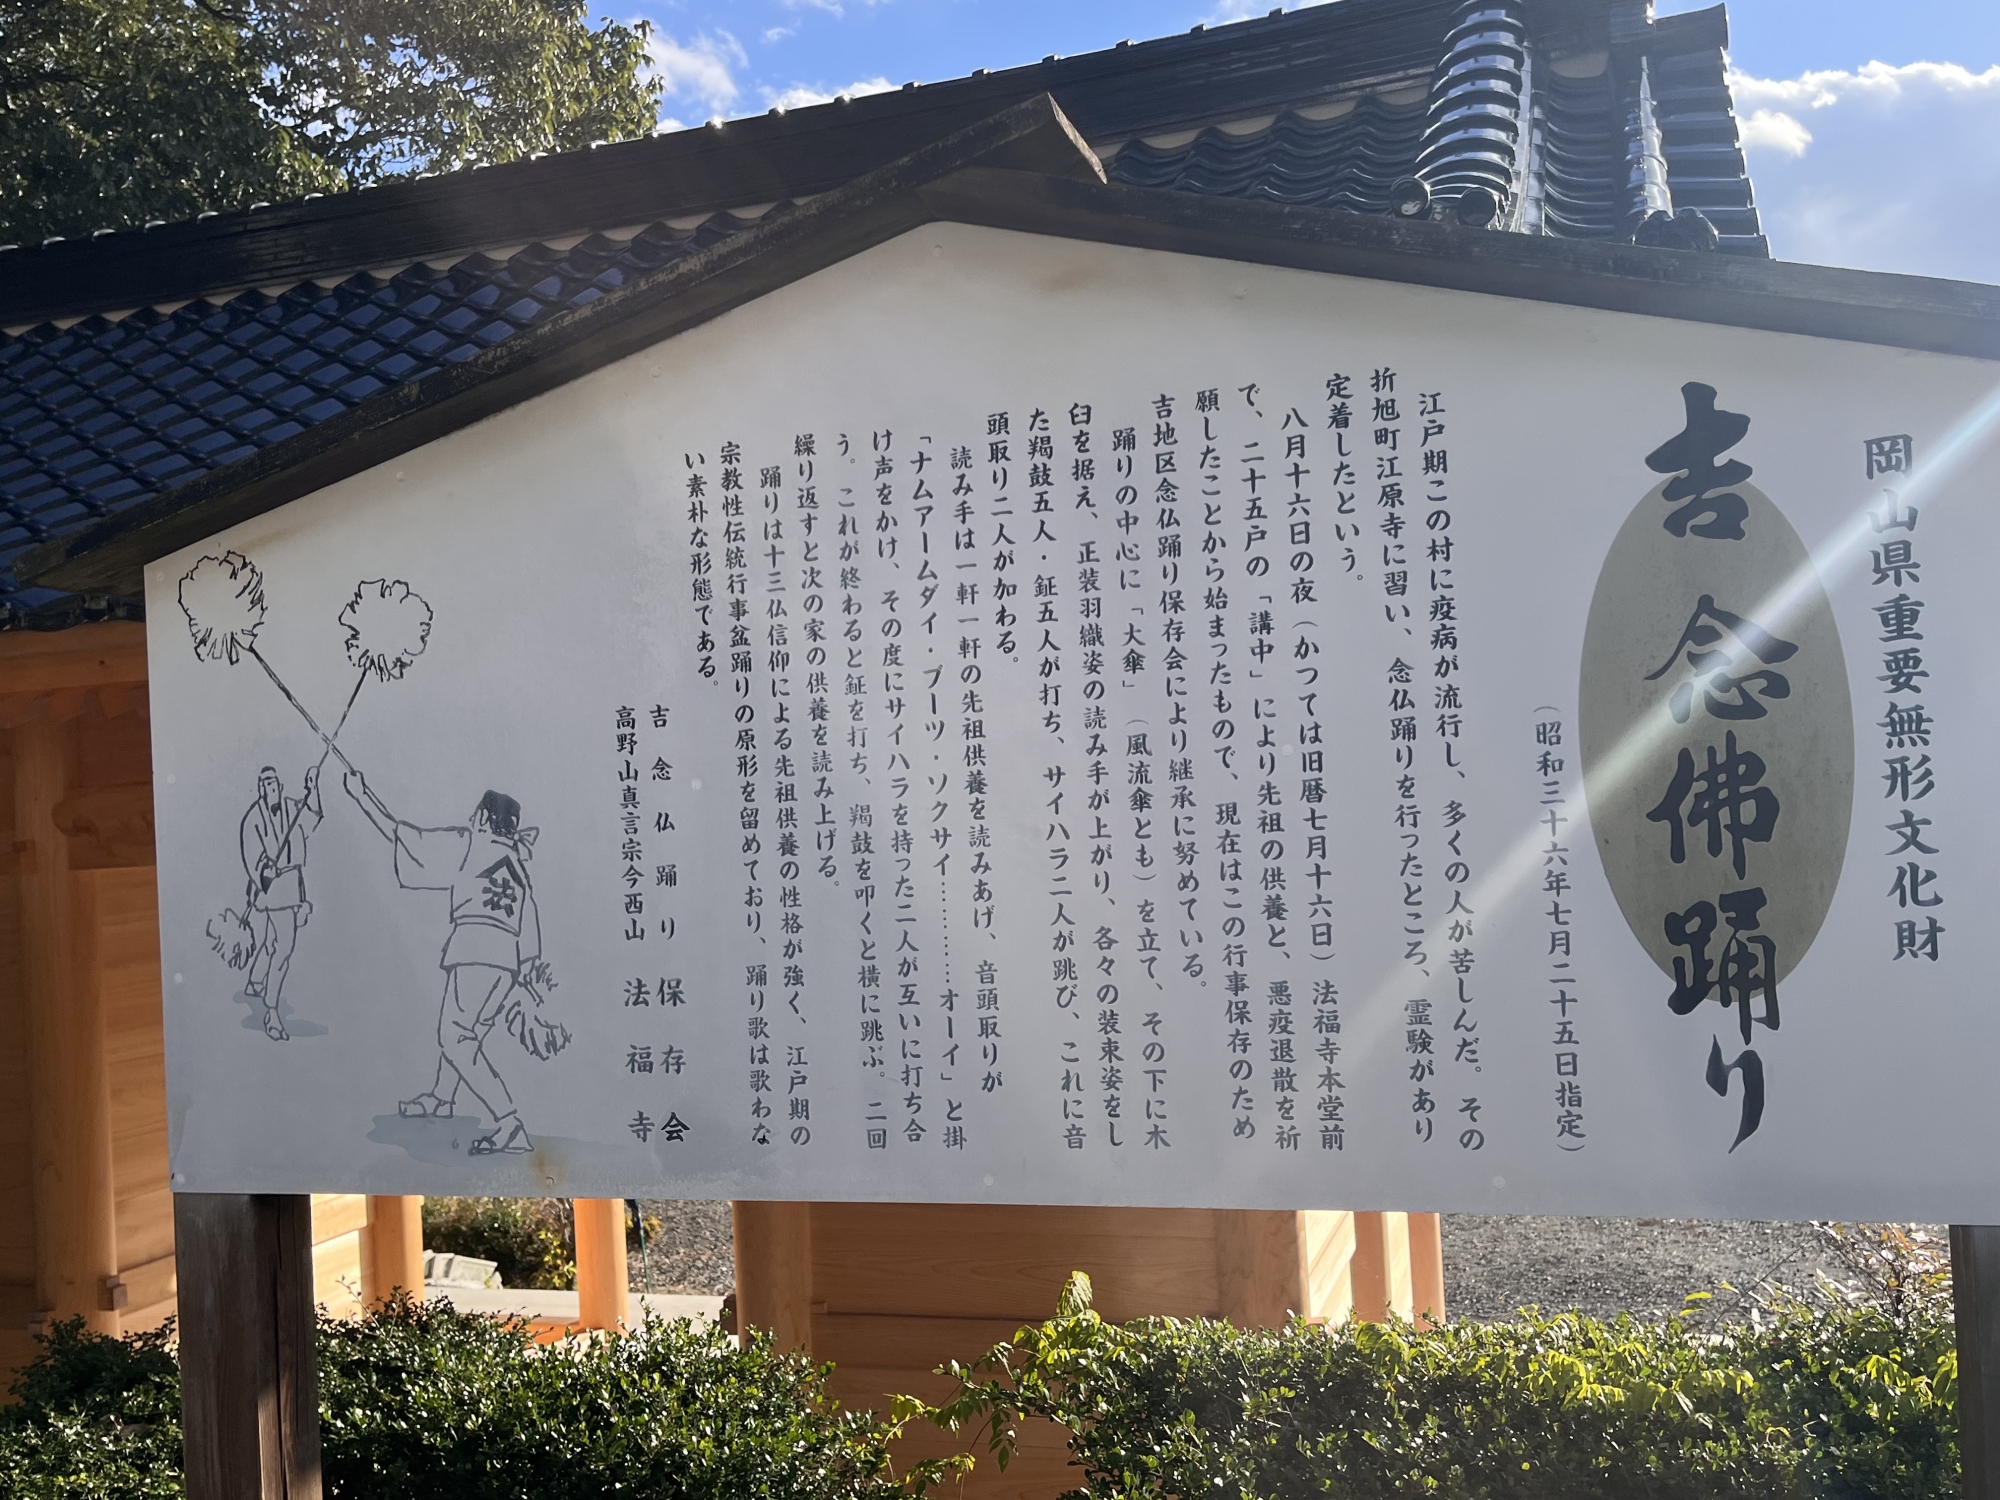 岡山県重要無形文化財
吉念佛踊り
（昭和三十六年七月二十五日指定）
江戸期この村に疫病が流行し、多くの人が苦しんだ。その
折旭町江原寺に習い、念仏踊りを行ったところ、霊験があり
定着したという。
八月十六日の夜（かつては旧暦七月十六日）法福寺本堂前
で、二十五戸の「講中」により先祖の供養と、悪疫退散を祈
願したことから始まったもので、現在はこの行事保存のため
吉地区念仏踊り保存会により継承に努めている。
踊りの中心に「大傘」（風流傘とも）を立て、その下に木
臼を据え、正装羽織姿の読み手が上がり、各々の装束姿をし
た羯鼓五人・鉦五人が打ち、サイハラ二人が跳び、これに音
頭取り二人が加わる。
読み手は一軒一軒の先祖供養を読みあげ、音頭取りが
「ナムアームダイ・ブーツ・ソクサイ…………オーイ」と掛
け声をかけ、その度にサイハラを持った二人が互いに打ち合
う。これが終わると鉦を打ち、羯鼓を叩くと横に跳ぶ。二回
繰り返すと次の家の供養を読み上げる。
踊りは十三仏信仰による先祖供養の性格が強く、江戸期の
宗教性伝統行事盆踊りの原形を留めており、踊り歌は歌わな
い素朴な形態である。
吉念仏踊り保存会
高野山真言宗今西山 法福寺
法